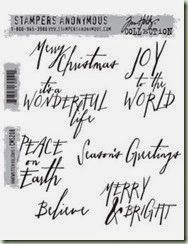 STAMPERS ANONYMOUS
Tim Holtz
COLLECTION
1-800-945-3980
WWW.STAMPERSANONYMOUS.COM
Merry
Christmas
JOY
to the
WORLD
it's a
WONDERFUL
life
PEACE
on
Earth
Season's Greetings
Believe
MERRY
& BRIGHT